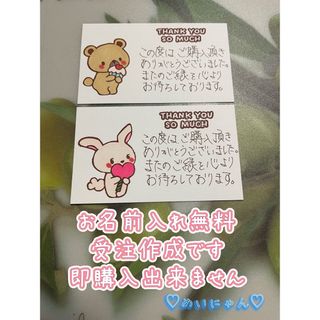 THANK YOU
SO MUCH
この度は、ご購入頂き
ありがとうございました。
またのご縁を心より
お待ちしております。
THANK YOU
SO MUCH
この度は、ご購入頂き
ありがとうございました。
またのご縁を心より
お待ちしております。
お名前入れ無料
受注作成です
即購入出来ません
♡めいにゃん♡